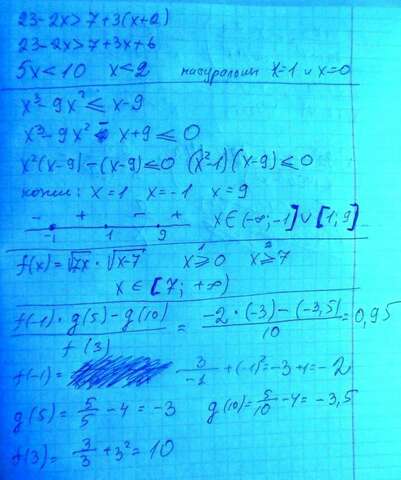 23-2x>7+3(x+2)
23-2x>7+3x+6
5x<10 x<2 натуральны x=1 и x=0
x³-9x²≤x-9
x³-9x²-x+9≤0
x²(x-9)-(x-9)≤0 (x²-1)(x-9)≤0
корни: x=1 x=-1 x=9
- + - +
-1 1 9 x∈(-∞;-1]∪[1;9]
f(x)=√7x·√x-7 x≥0 x≥7
x∈[7;+∞)
f(-1)·g(5)-g(10) / f(3) = -2·(-3)-(-3,5) / 10 =0,95
f(-1)= 3/-1 +(-1)²=-3+1=-2
g(5)= 5/5 -4=-3 g(10)= 5/10 -4=-3,5
f(3)= 3/3 +3²=10